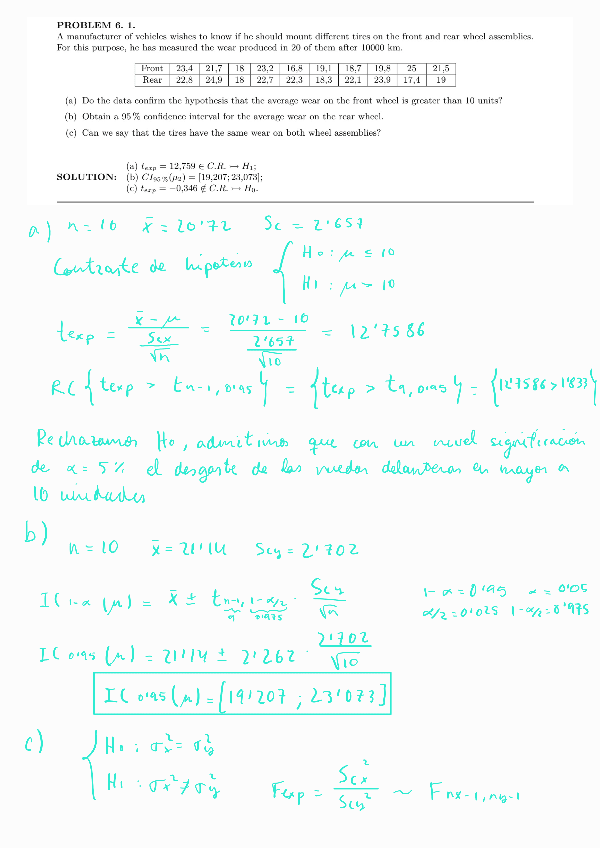 PROBLEM 6. 1.
A manufacturer of vehicles wishes to know if he should mount different tires on the front and rear wheel assemblies.
For this purpose, he has measured the wear produced in 20 of them after 10000 km.
Front 23,4 21,7 18 23,2 16,8 19,1 18,7 19,8 25 21,5
Rear 22,8 24,9 18 22,7 22,3 18,3 22,1 23,9 17,4 19
(a) Do the data confirm the hypothesis that the average wear on the front wheel is greater than 10 units?
(b) Obtain a 95 % confidence interval for the average wear on the rear wheel.
(c) Can we say that the tires have the same wear on both wheel assemblies?
(a) t_exp = 12,759 ∈ C.R. ↦ H₁;
SOLUTION: (b) CI₉₅%(μ₂) = [19,207; 23,073];
(c) t_exp = −0,346 ∉ C.R. ↦ H₀.
a) n = 10 x̄ = 20'72 Sc = 2'657
Contraste de hipótesis { H₀ : μ ≤ 10
H₁ : μ > 10
t_exp = (x̄ − μ) / (Scx/√n) = (20'72 − 10) / (2'657/√10) = 12'7586
RC { t_exp > t_n−1, 0'95 } = { t_exp > t_9, 0'95 } = { 12'7586 > 1'833 }
Rechazamos H₀, admitimos que con un nivel significación
de α = 5 % el desgaste de las ruedas delanteras es mayor a
10 unidades
b)
n = 10 x̄ = 21'14 Scy = 2'702
IC 1−α (μ) = x̄ ± t_n−1, 1−α/2 · Scy/√n 1−α = 0'95 α = 0'05
9 0'975 α/2 = 0'025 1−α/2 = 0'975
IC 0'95 (μ) = 21'14 ± 2'262 · 2'702/√10
IC 0'95 (μ) = [19'207 ; 23'073]
c) { H₀ : σx² = σy²
H₁ : σx² ≠ σy² F_exp = Scx²/Scy² ~ F nx−1, ny−1